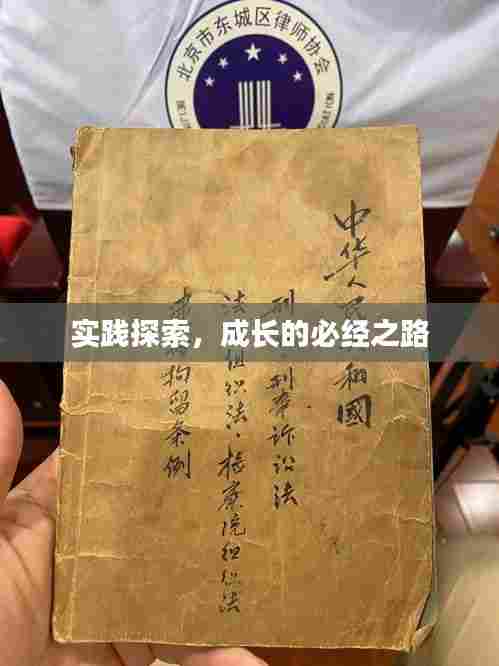 北京市东城区律师协会
中华人民和國
刑·刑事诉讼法
法组织法·检察院组织法
逮拘留条例
实践探索，成长的必经之路